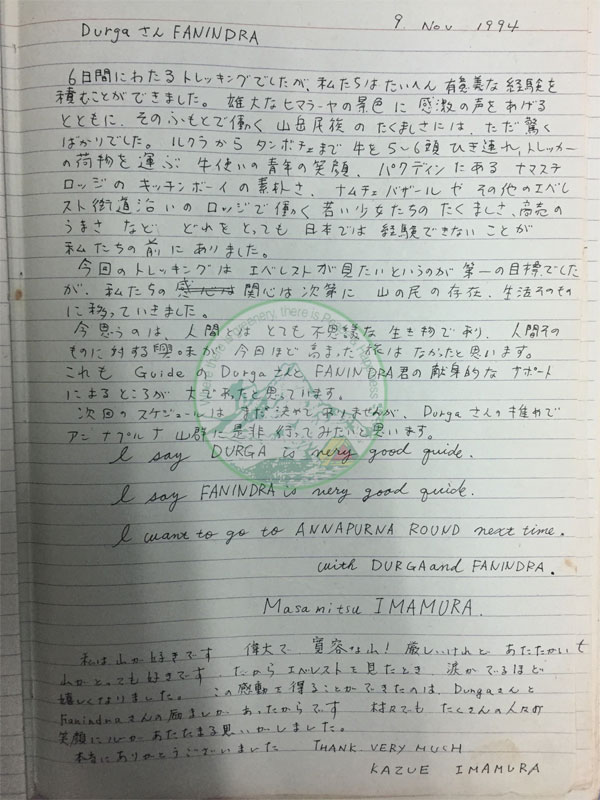 9 Nov 1994
Durga さん FANINDRA
6日間にわたるトレッキングでしたが、私たちはたいへん有意義な経験を
積むことができました。雄大なヒマラーヤの景色に感激の声をあげる
とともに、そのふもとで働く山岳民族のたくましさには、ただ驚く
ばかりでした。ルクラからタンボチェまで牛を5〜6頭ひき連れ、トレッカー
の荷物を運ぶ牛使いの青年の笑顔、パクディンにあるナマステ
ロッジのキッチンボーイの素朴さ、ナムチェバザールやその他のエベレ
スト街道沿いのロッジで働く若い少女たちのたくましさ、商売の
うまさなど、どれをとっても日本では経験できないことが
私たちの前にありました。
今回のトレッキングはエベレストが見たいというのが第一の目標でした
が、私たちの関心は次第に山の民の存在、生活そのもの
に移っていきました。
今思うのは、人間とはとても不思議な生き物であり、人間その
ものに対する興味が今回ほど高まった旅はなかったと思います。
これも Guide の Durga さんと FANINDRA 君の献身的なサポート
によるところが大であったと思っています。
次回のスケジュールはまだ決めてありませんが、Durga さんの推めで
アンナプルナ山群に是非行ってみたいと思います。
I say DURGA is very good guide.
I say FANINDRA is very good guide.
I want to go to ANNAPURNA ROUND next time.
with DURGA and FANINDRA.
Masamitsu IMAMURA.
私は山が好きです 偉大で寛容な山! 厳しいけれどあたたかい
山がとっても好きです だからエベレストを見たとき、涙がでるほど
嬉しくなりました。この感動を得ることができたのは、Durgaさんと
Fanindraさんの励ましがあったからです 村々でもたくさんの人々の
笑顔に心があたたまる思いがしました。
本当にありがとうございました THANK VERY MUCH
KAZUE IMAMURA